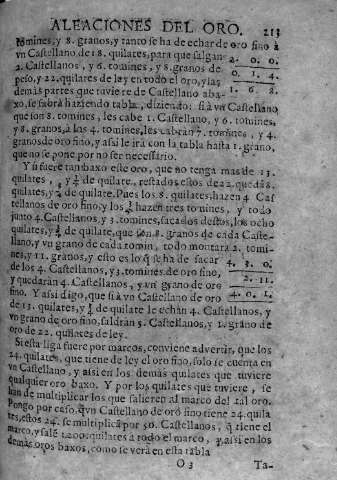 ALEACIONES DEL ORO. 213
tomines, y 8. granos, y tanto se ha de echar de oro fino à
vn Castellano de 18. quilates, para que salgan
2. Castellanos, y 6. tomines, y 8. granos de 2. 0. 0.
peso, y 22. quilates de ley en todo el oro, y las 0. 1. 4.
demás partes que tuviere de Castellano aba- 1. 6. 8.
xo, se sabrà haziendo tabla, diziendo: si à vn Castellano,
que son 8. tomines, les cabe 1. Castellano, y 6. tomines,
y 8. granos, à los 4. tomines, les cabràn 7. tomines, y 4.
granos de oro fino, y assi le irà con la tabla hasta 1. grano,
que no se pone por no ser necessario.
Y si fuere tan baxo este oro, que no tenga mas de 13.
quilates, y ½ de quilate, restados estos de 22. quedã 8.
quilates, y ½ de quilate. Pues los 8. quilates, hazen 4 Cas
tellanos de oro fino, y los ½ hazen tres tomines, y todo
junto 4. Castellanos, y 3. tomines, sacados destos, los ocho
quilates, y ½ de quilate, que son 8. granos de cada Caste-
llano, y vn grano de cada tomin, todo montarà 2. tomi-
nes, y 11. granos, y esto es lo q̃ se ha de sacar 4. 3. 0.
de los 4. Castellanos, y 3. tomines de oro fino, 2. 11.
y quedaràn 4. Castellanos, y vn grano de oro
fino. Y assi digo, que si à vn Castellano de oro 4. 0. 1.
de 13. quilates, y ½ de quilate le echàn 4. Castellanos, y
vn grano de oro fino, saldràn 5. Castellanos, y 1. grano de
oro de 22. quilates de ley.
Si esta liga fuere por marcos, conviene advertir, que los
24. quilates, que tiene de ley el oro fino, solo se cuenta en
vn Castellano, y assi en los demás quilates que tuviere
qualquier oro baxo. Y por los quilates que tuviere, se
han de multiplicar los que salieren al marco del tal oro.
Pongo por caso, q̃ vn Castellano de oro fino tiene 24. quila
tes, estos 24. se multiplicã por 50. Castellanos, q̃ tiene el
marco, y salẽ 1200. quilates à todo el marco, y assi en los
demás oros baxos, como se verà en esta tabla
O 3 Ta-